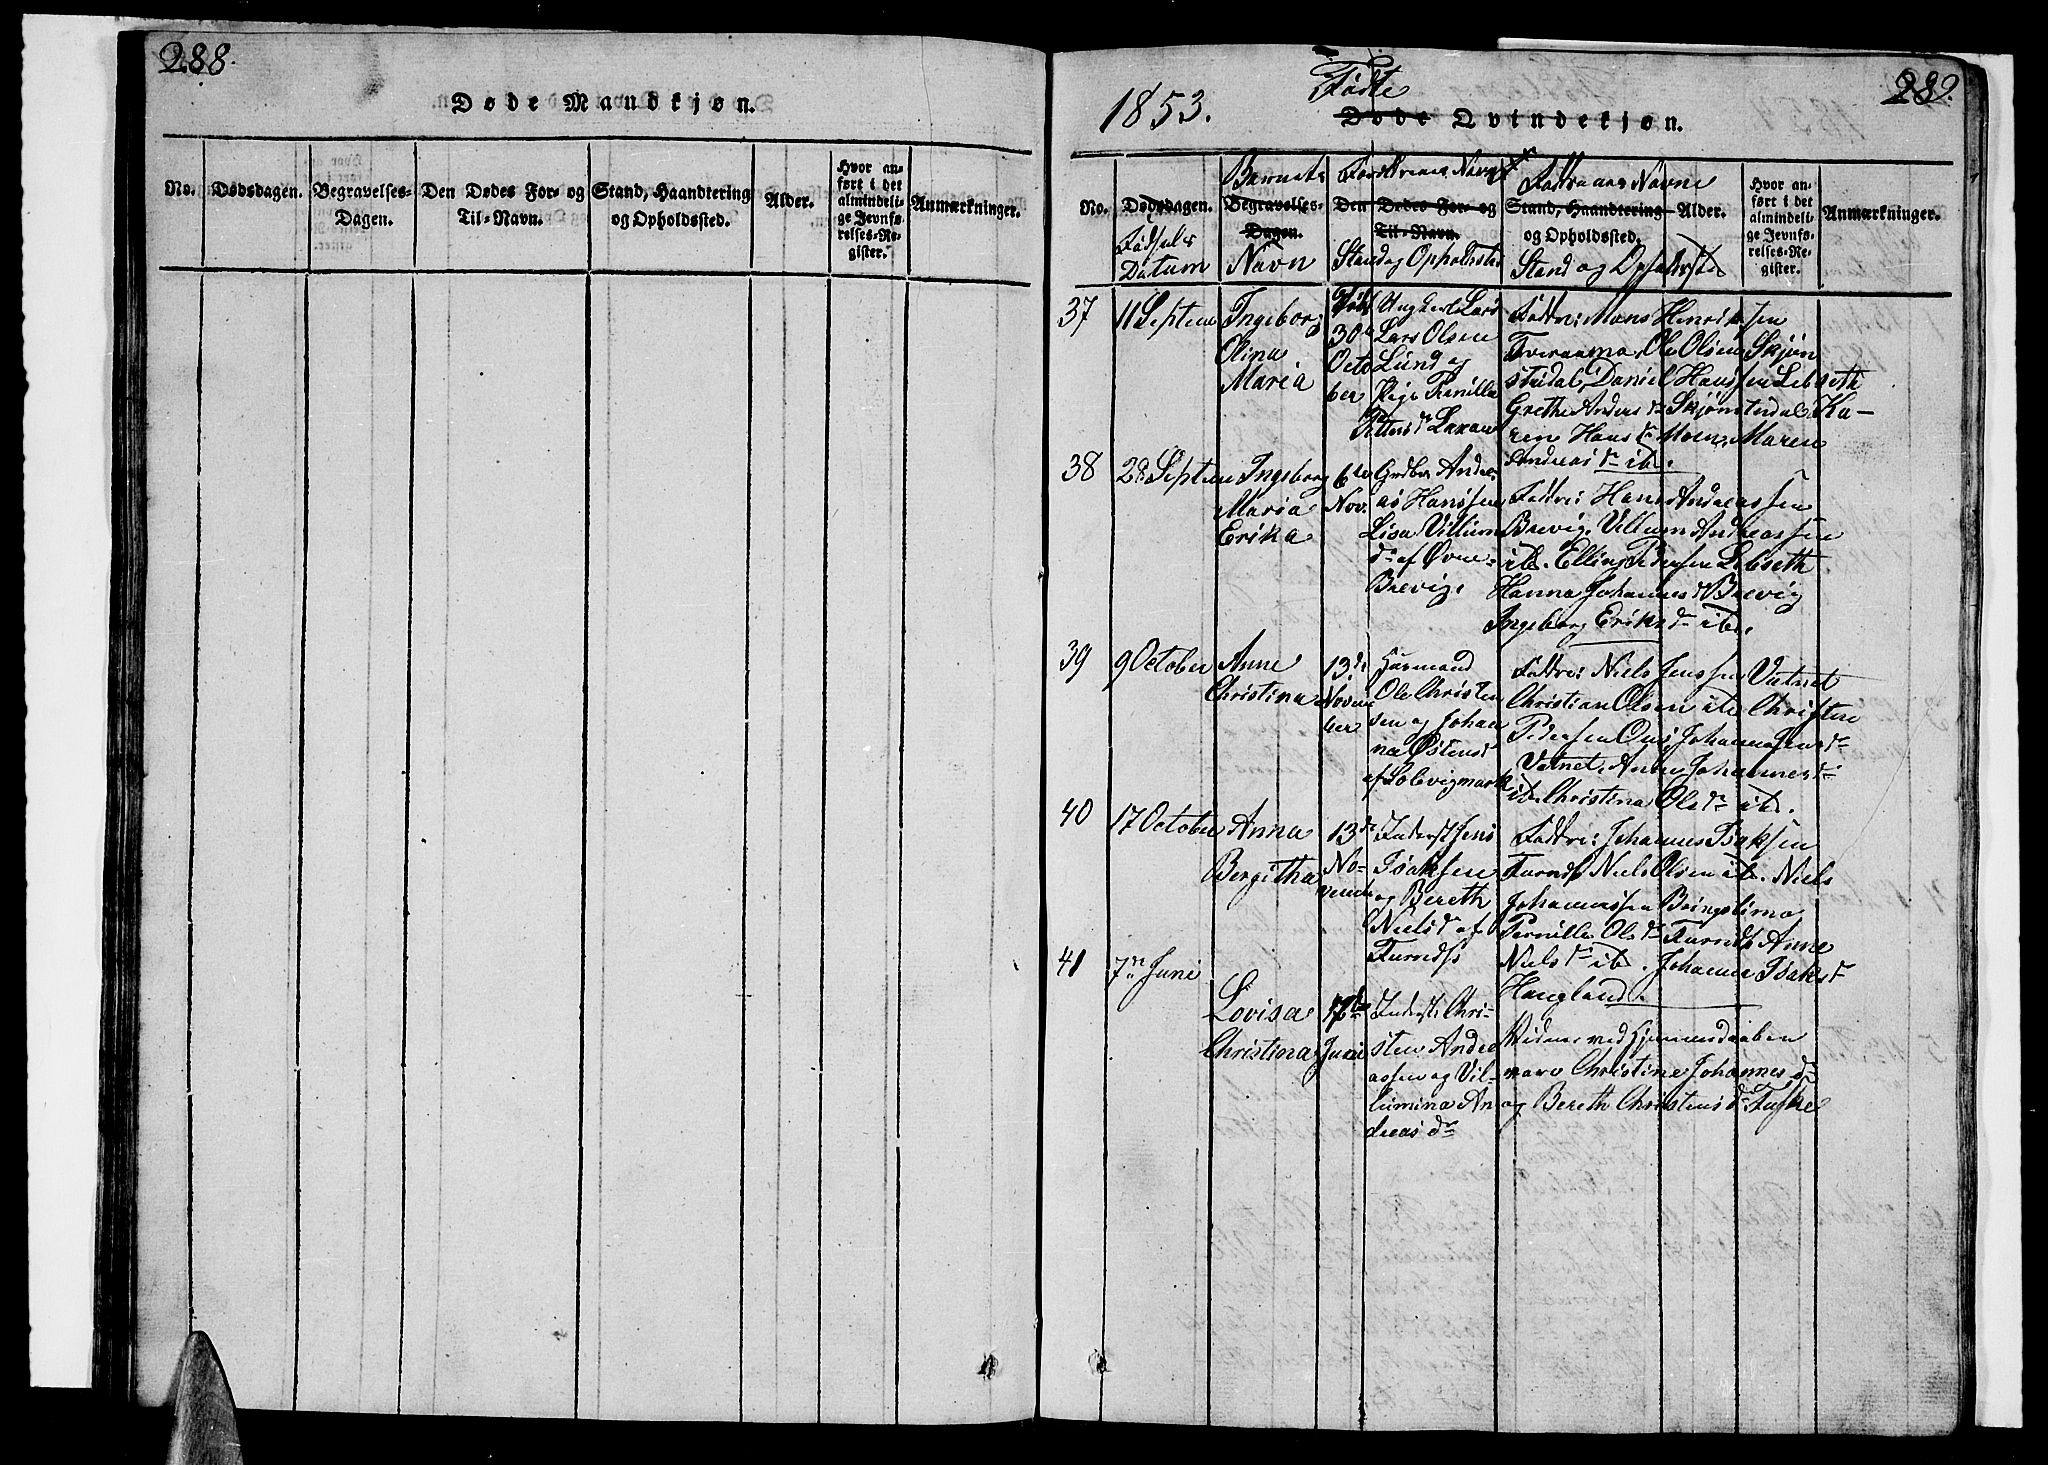 288.
Døde Mandkjøn.
No.
Dødsdagen.
Begravelses-
Dagen.
Den Dødes For- og
Til-Navn.
Stand, Haandtering
og Opholdssted.
Alder.
Hvor an-
ført i det
almindeli-
ge Jevnfø-
relses-Re-
gister.
Anmærkninger.
289.
1853.
Fødte
Døde Qvindekjøn.
No.
Dødsdagen.
Fødsels
Datum
Barnets
Begravelses-
Dagen.
Navn
Forældrenes Navne
Den Dødes For- og
Til-Navn.
Stand og Opholdsted
Faddernes Navne
Stand, Haandtering
og Opholdssted.
Stand og Opholdsted
Alder.
Hvor an-
ført i det
almindeli-
ge Jevnfø-
relses-Re-
gister.
Anmærkninger.
37
11 Septem
Ingeborg
Olina
Maria
30
Octo
ber
Ungkarl Lars
Lars Olsen
Lund og
Pige Pernilla
Petters Dr Laxaae
Faddre: Mons Henriksen
Tveraamo, Ole Olsen Skjøn
stedal, Daniel Hanssen Lebseth
Grethe Anders Dr Skjønstedal, Ka-
ren Hans Dr Moen, Maren
Andreas Dr ib.
38
28 Septem
Ingeborg
Maria
Erika
6te
Nov.
Grdbr Andre-
as Hanssen
Lisa Villum
Dr af Øvre
Brevig.
Faddre: Hans Andreassen
Brevig, Villum Andreassen
ib. Elling Pedersen Lebseth
Hanna Johannes Dr Brevig
Ingeborg Eriks Dr ib.
39
9 October
Anne
Christina
13de
Novem
ber
Huusmand
Ole Christen
sen og Johan
na Østens Dr
af Solevigmark
Faddre: Niels Jenssen Vatnet
Christian Olsen ib. Christen
Pedersen Johanna Jens Dr
Vatnet, Anne Johannes Dr
ib. Christina Ols Dr ib.
40
17 October
Anna
Bergitha
13de
No-
vemb
Inderst Jens
Isaksen
og Bereth
Niels Dr af
Furnæs
Faddre: Johannes Isaksen
Furnæs Niels Olsen ib. Niels
Johannessen Bringslimo,
Pernille Ols Dr Furnæs Anne
Niels Dr ib. Johanna Isaks Dr
Haugland.
41
7de Juni
Lovisa
Christina
Juni
Inderst Chri-
sten Andre
assen og Vil-
lumina An
dreas Dr
Vidner ved Hjemmedaaben
vare Christine Johannes Dr
og Bereth Christens Dr Fuske